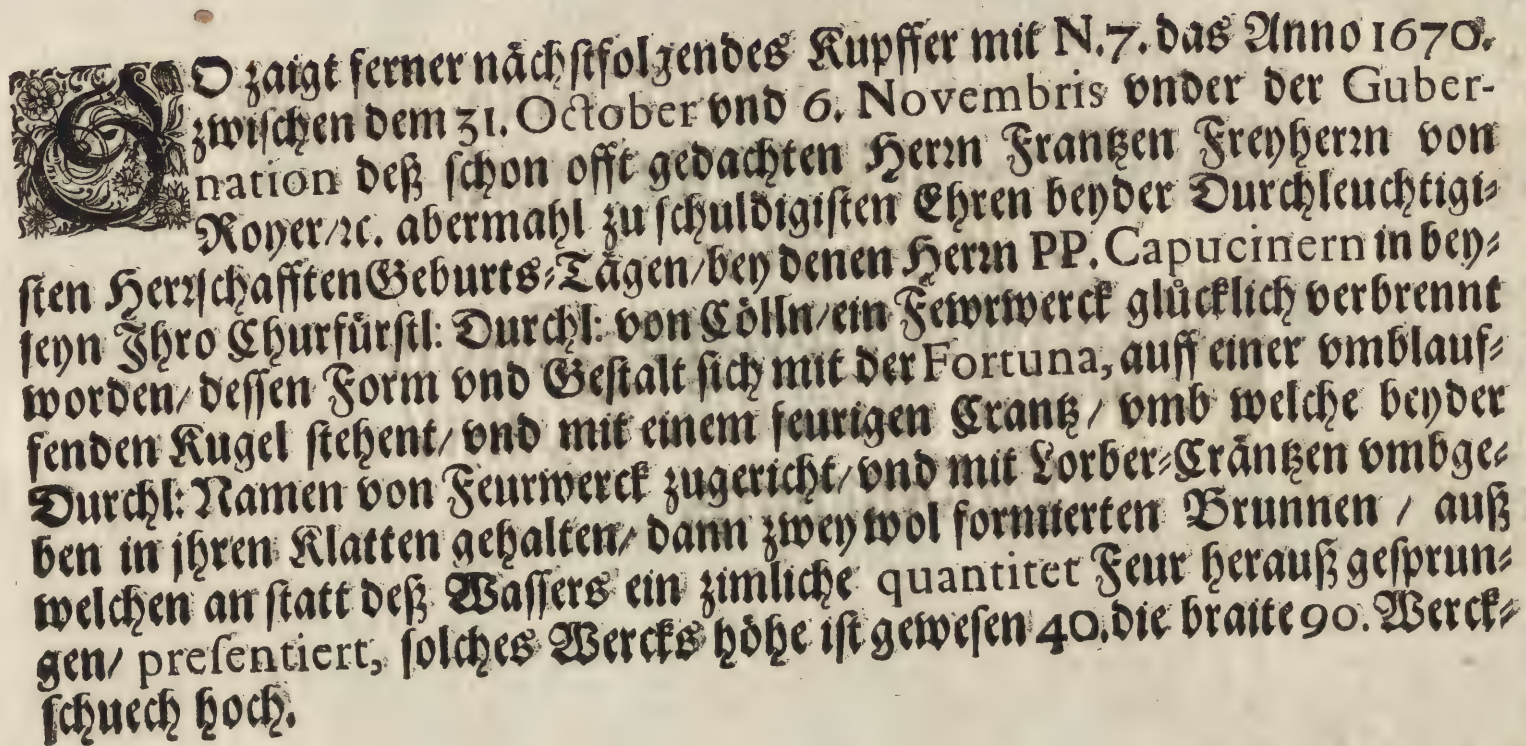 SO zaigt ferner nächstfolgendes Kupffer mit N.7. das Anno 1670.
zwischen dem 31. October vnd 6. Novembris vnder der Guber-
nation deß schon offt gedachten Herrn Frantzen Freyherrn von
Royer/ꝛc. abermahl zu schuldigisten Ehren beyder Durchleuchtigi-
sten Herrschafften Geburts-Tägen/bey denen Herrn PP. Capucinern in bey-
seyn Ihro Churfürstl: Durchl: von Cölln/ein Fewrwerck glücklich verbrennt
worden/dessen Form vnd Gestalt sich mit der Fortuna, auff einer vmblauf-
fenden Kugel stehent/vnd mit einem feurigen Crantz/ vmb welche beyder
Durchl: Namen von Feurwerck zugericht/vnd mit Lorber-Cräntzen vmbge-
ben in jhren Klatten gehalten/dann zwey wol formierten Brunnen / auß
welchen an statt deß Wassers ein zimliche quantitet Feur herauß gesprun-
gen/ presentiert, solches Wercks höhe ist gewesen 40. die braite 90. Werck-
schuech hoch.